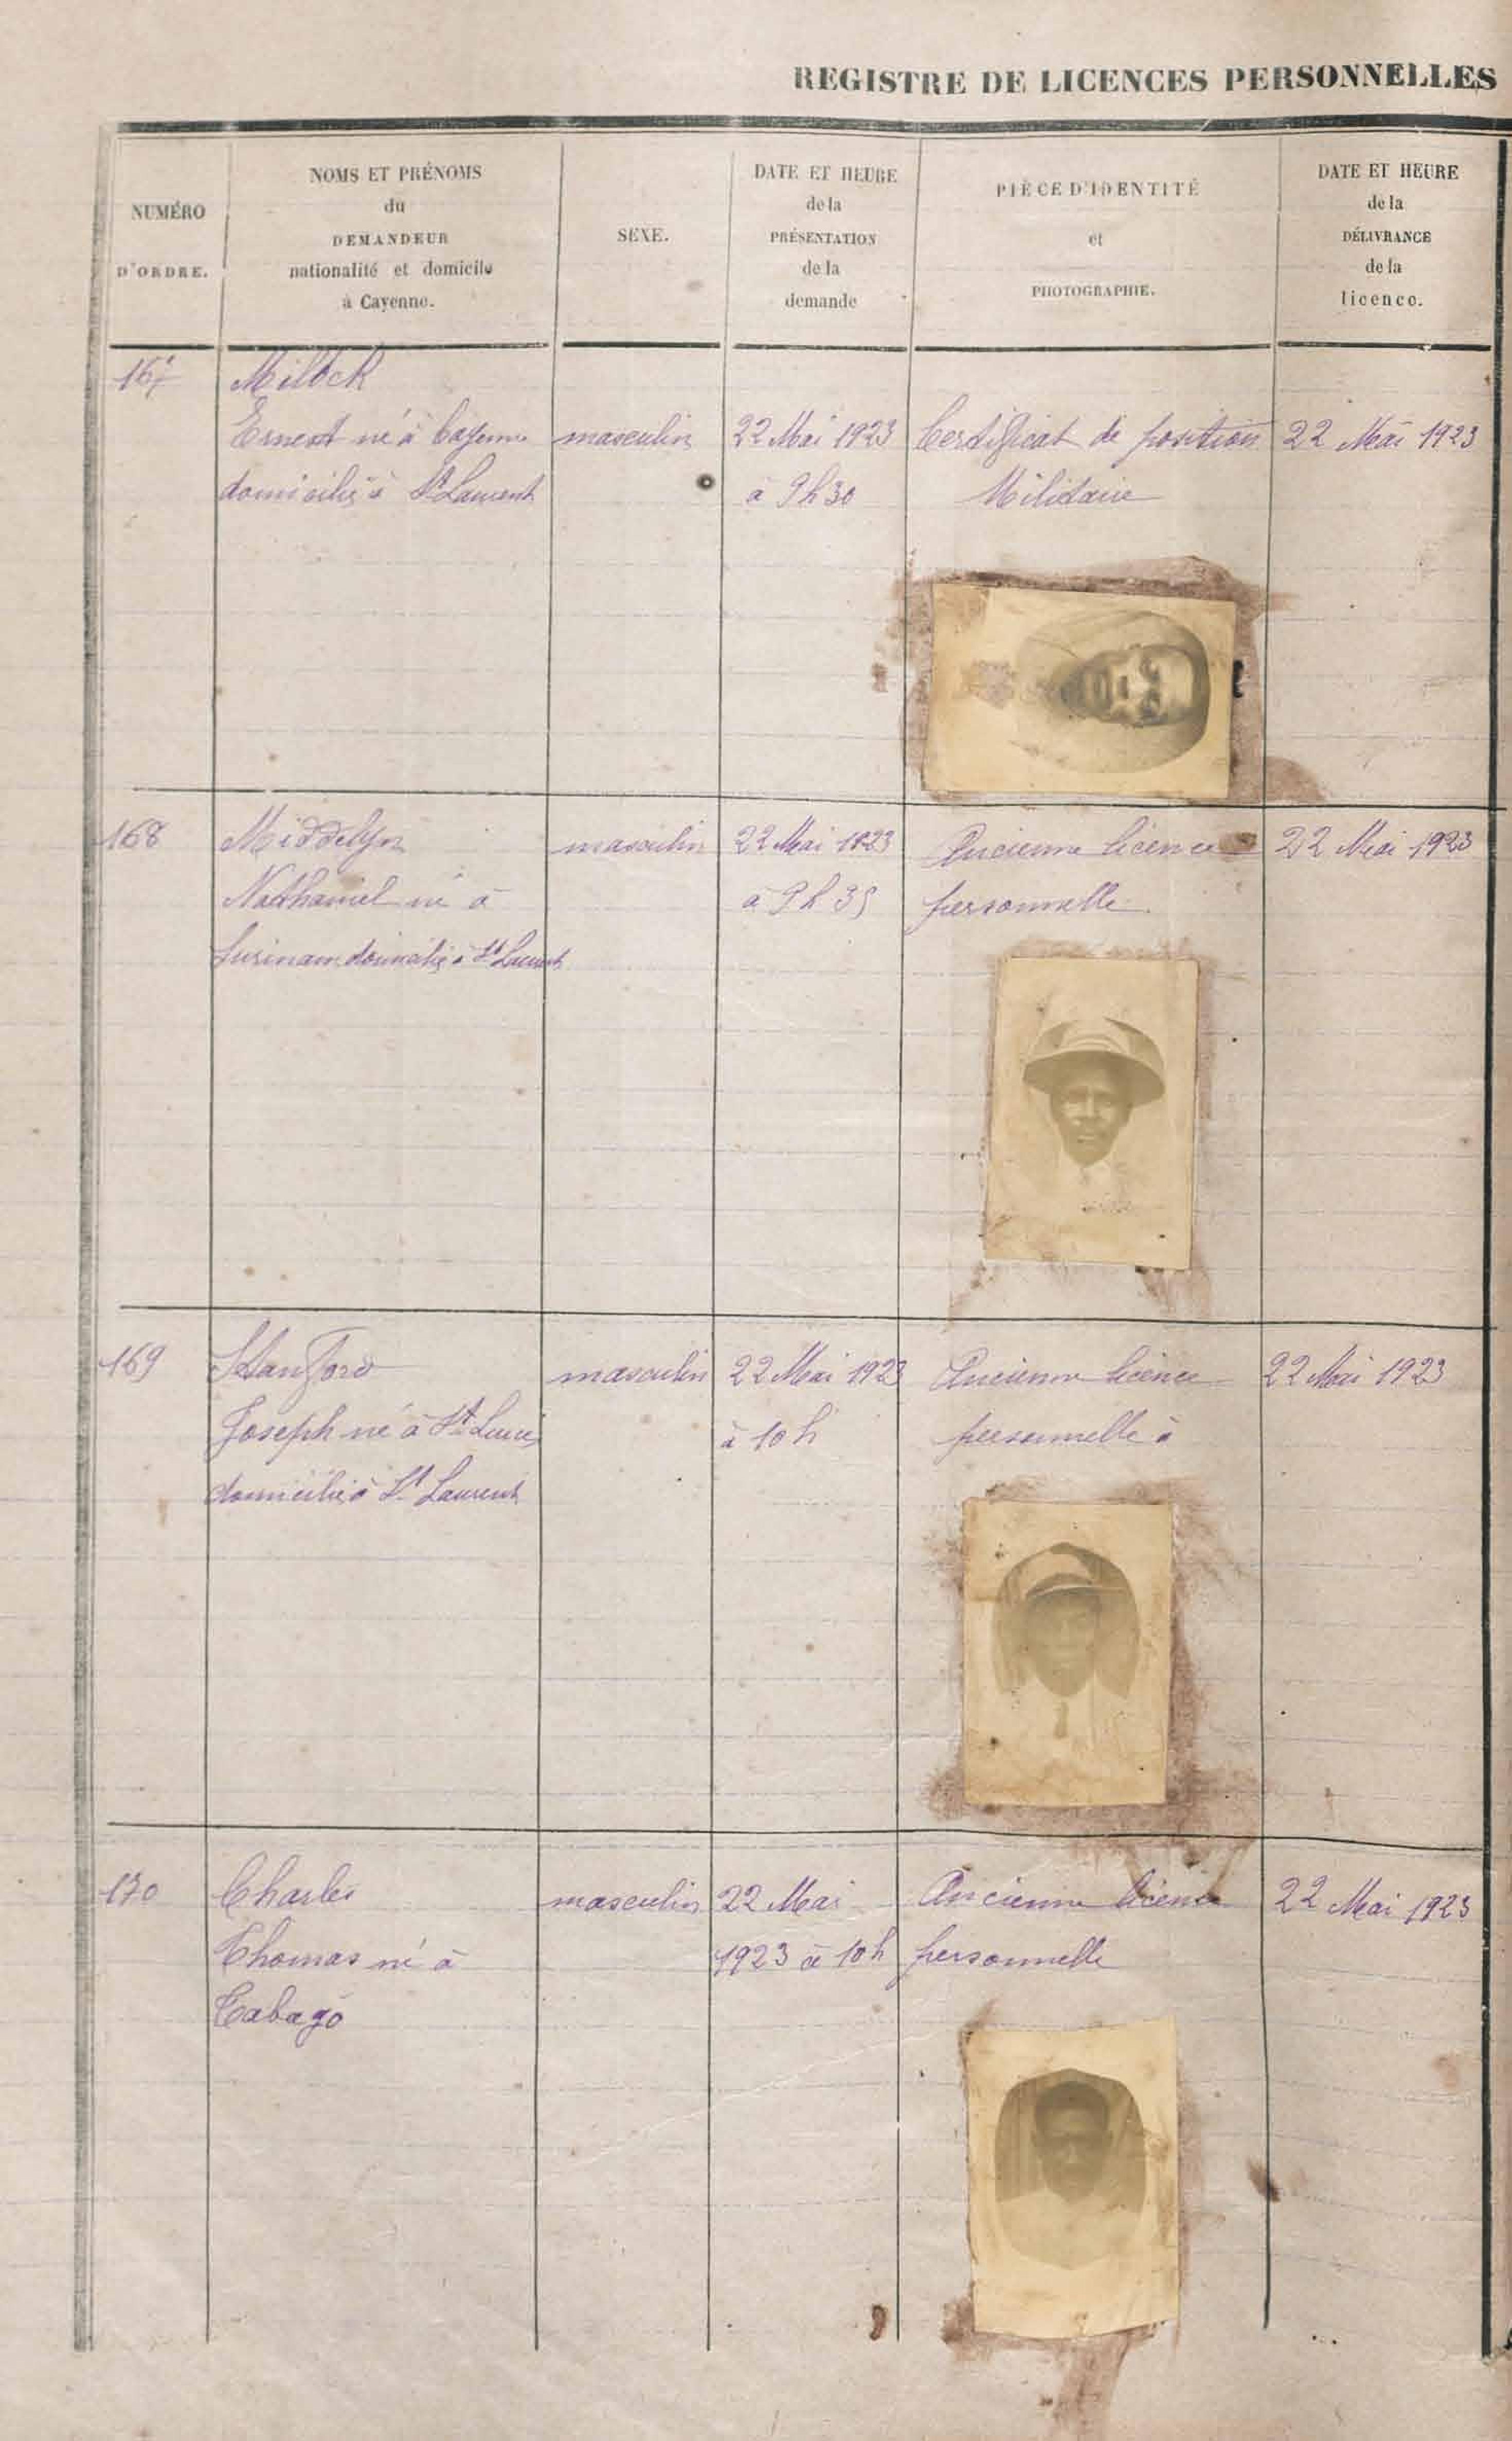 REGISTRE DE LICENCES PERSONNELLES
NUMÉRO
D'ORDRE.
NOMS ET PRÉNOMS
du
DEMANDEUR
nationalité et domicile
à Cayenne.
SEXE.
DATE ET HEURE
de la
PRÉSENTATION
de la
demande
PIÈCE D'IDENTITÉ
et
PHOTOGRAPHIE.
DATE ET HEURE
de la
DÉLIVRANCE
de la
licence.
167
Milock
Ernest né à Cayenne
domicilié à St Laurent
masculin
22 Mai 1923
à 9h30
Certificat de position
Militaire
22 Mai 1923
168
Middelyn
Nathaniel né à
Surinam domicilié à St Laurent
masculin
22 Mai 1923
à 9h35
Ancienne licence
personnelle
22 Mai 1923
169
Stanford
Joseph né à Ste Lucie
domicilié à St Laurent
masculin
22 Mai 1923
à 10h
Ancienne licence
personnelle à
22 Mai 1923
170
Charles
Thomas né à
Tabago
masculin
22 Mai
1923 à 10h
Ancienne licence
personnelle
22 Mai 1923